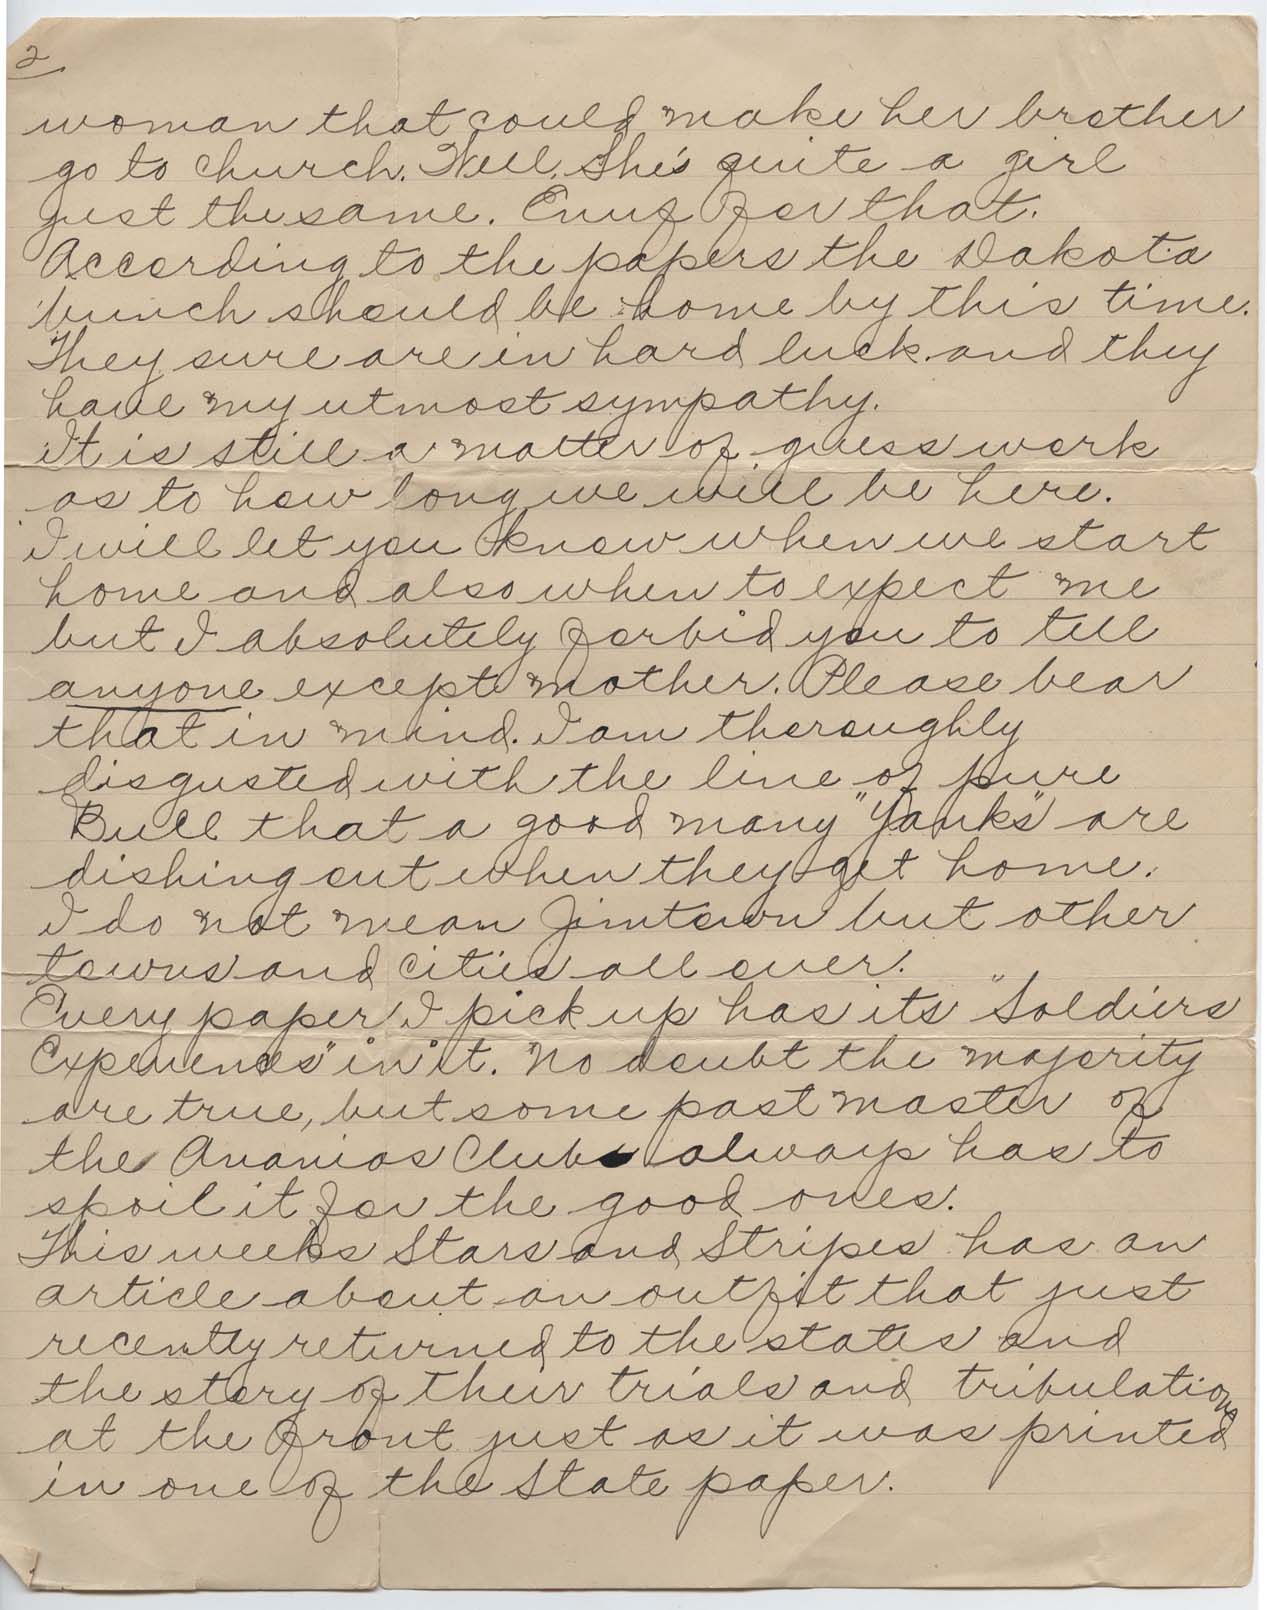 2
woman that could make her brother
go to church. Well, She's quite a girl
just the same. Enuf for that.
According to the papers the Dakota
bunch should be home by this time.
They sure are in hard luck and they
have my utmost sympathy.
It is still a matter of guess work
as to how long we will be here.
I will let you know when we start
home and also when to expect me
but I absolutely forbid you to tell
anyone except mother. Please bear
that in mind. I am thoroughly
disgusted with the line of pure
Bull that a good many "Yanks" are
dishing out when they get home.
I do not mean Jimtown but other
towns and cities all over.
Every paper I pick up has its "Soldiers
Experiences" in it. No doubt the majority
are true, but some past master of
the Ananias Club always has to
spoil it for the good ones.
This weeks Stars and Stripes has an
article about an outfit that just
recently returned to the states and
the story of their trials and tribulations
at the front just as it was printed
in one of the State paper.